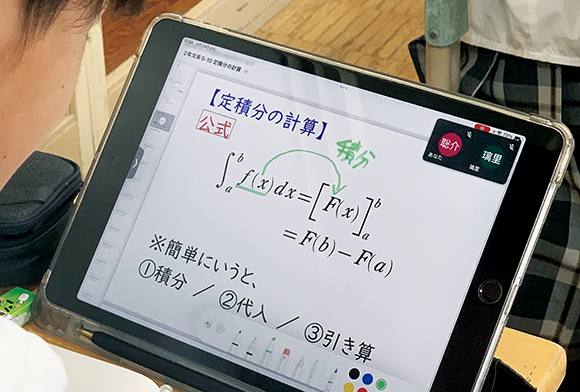 2年文系5-10 定積分の計算
【定積分の計算】
公式
積分
∫ₐᵇ f(x)dx=[F(x)]ₐᵇ
=F(b)−F(a)
※簡単にいうと、
①積分 / ②代入 / ③引き算
聡介
あなた
璃里